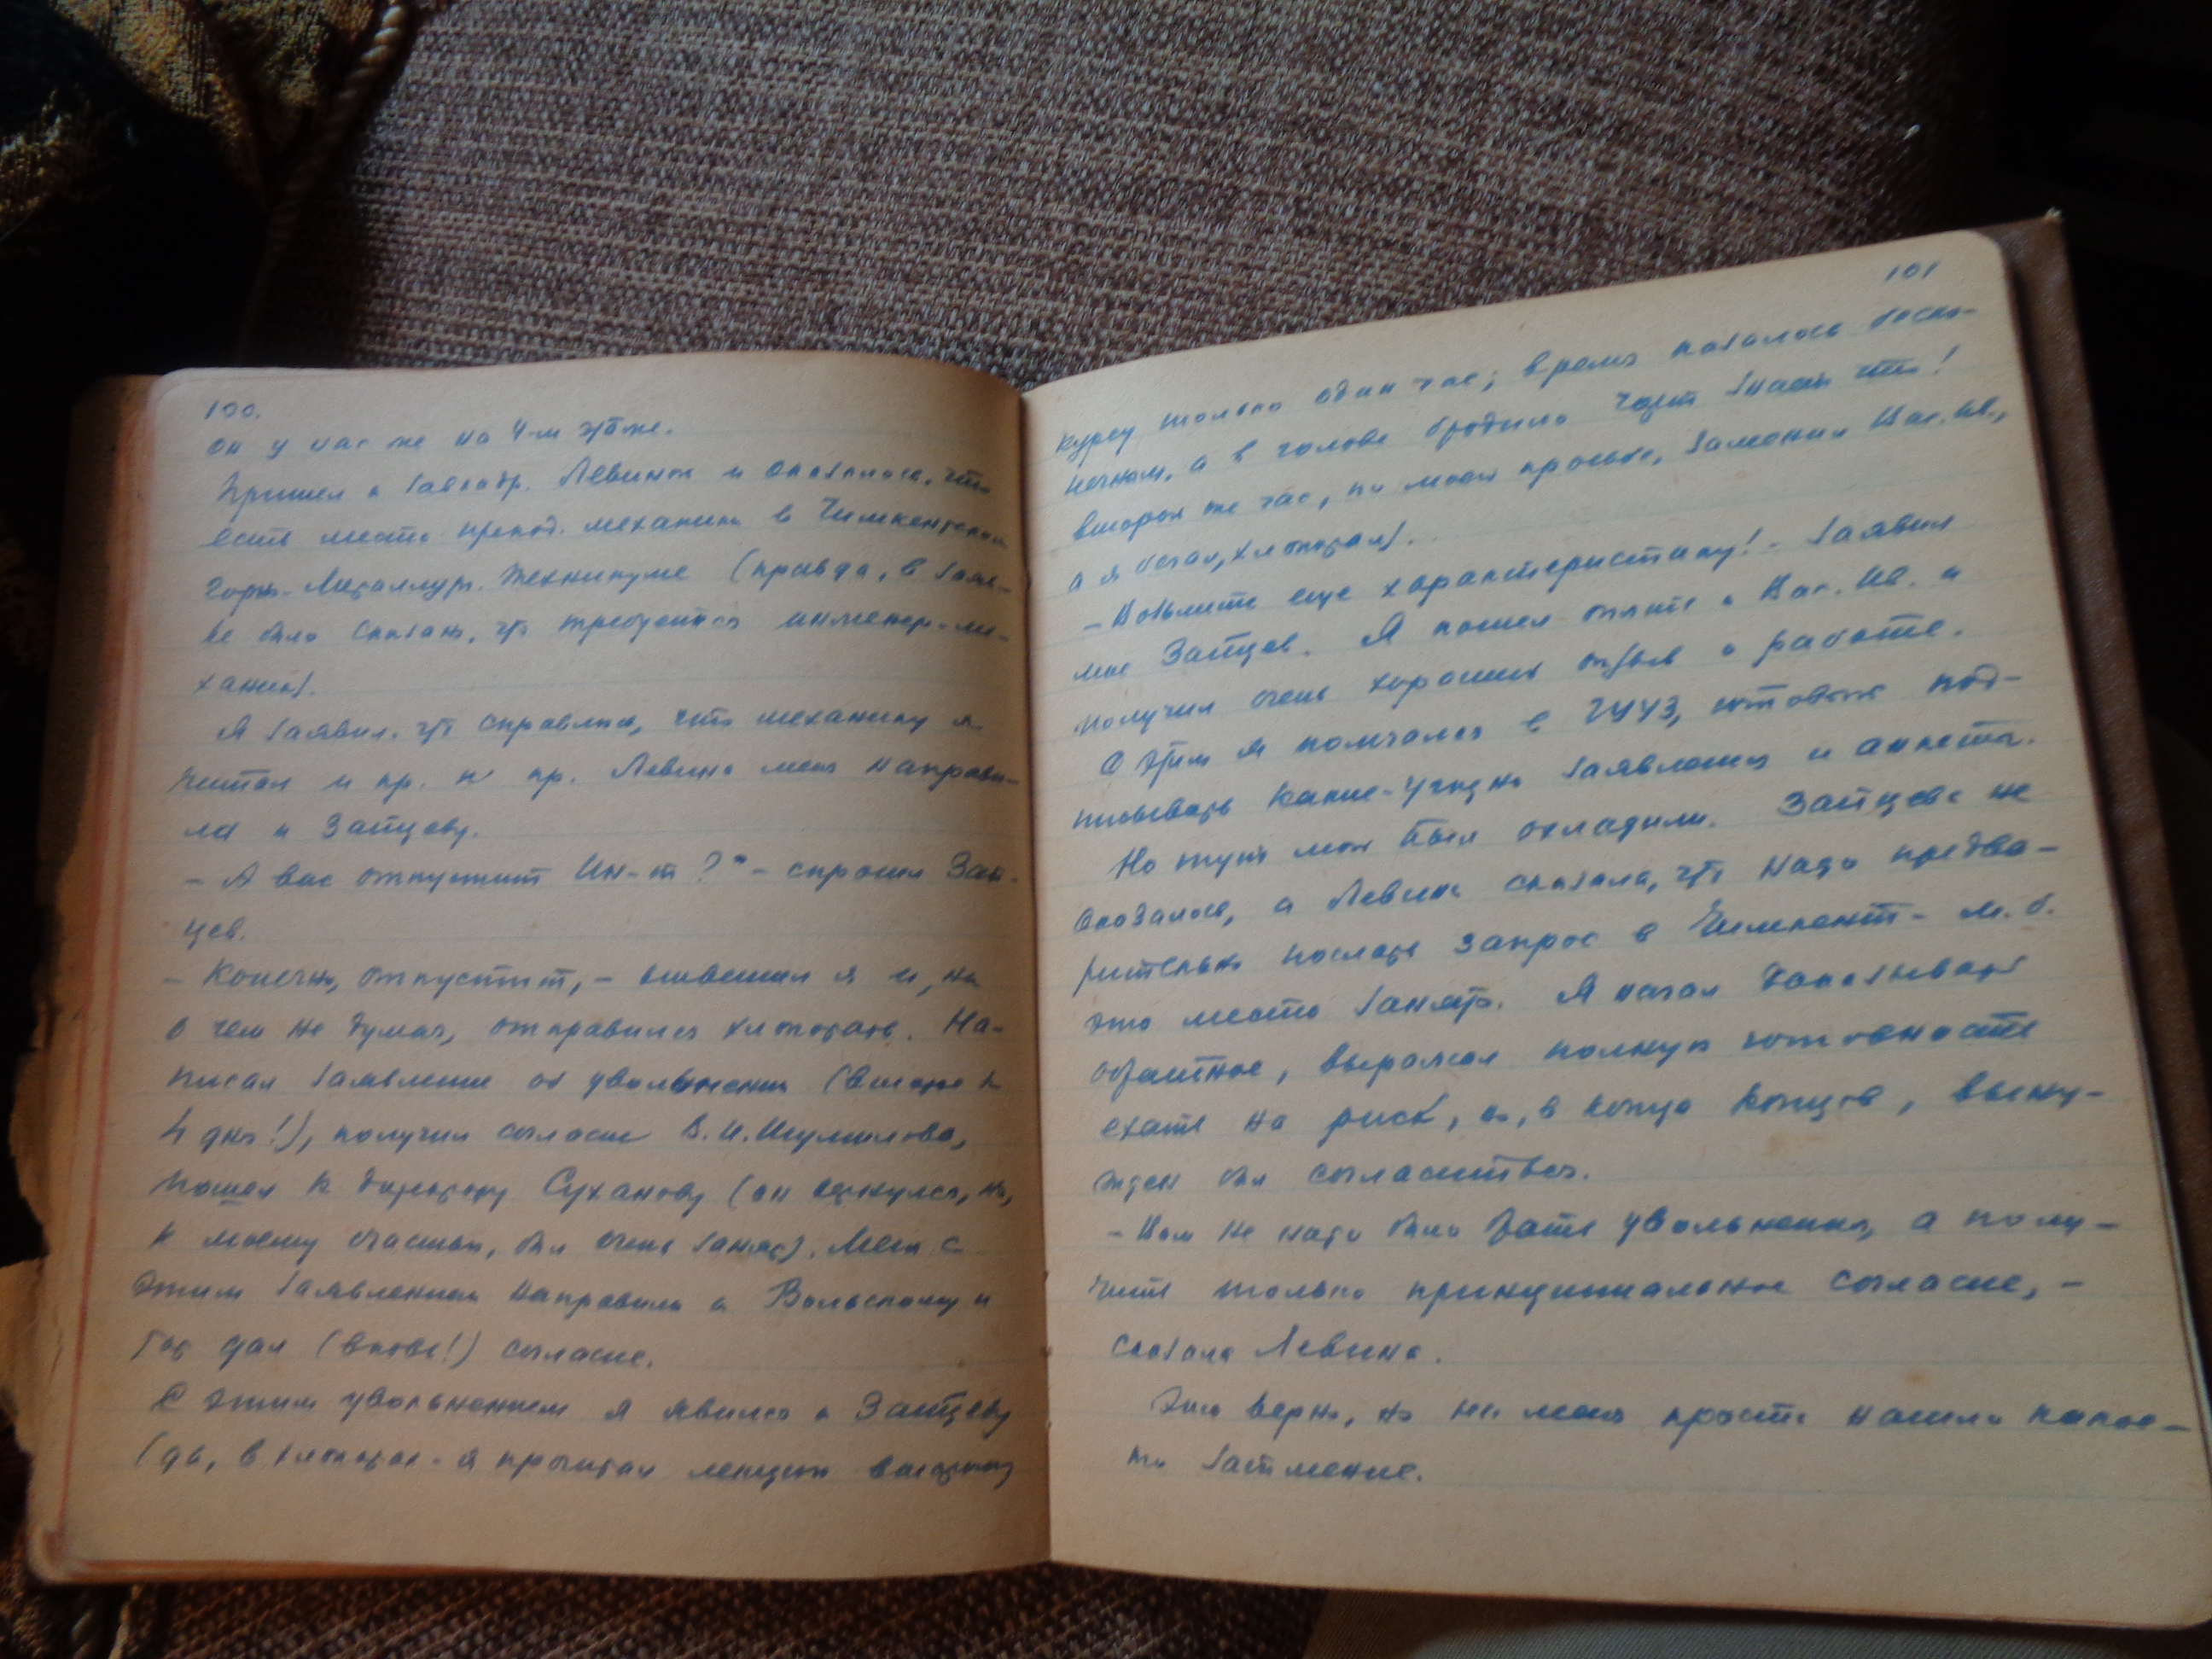 100.
он у нас же на 4-м этаже.
Пришел к завкадр. Левиной и оказалось, что
есть место препод. механики в Чимкентском
Горн.-Металлург. техникуме (правда, в заяв-
ке было сказано, что требуется инженер-ме-
ханик).
Я заявил, что справлюсь, что механику я
читал и пр. и пр. Левина меня направи-
ла к Зайцеву.
- А вас отпустит Ин-т? - спросил Зай-
цев.
- Конечно, отпустит, - ответил я и, ни
о чем не думая, отправился хлопотать. На-
писал заявление об увольнении (второе за
4 дня!), получил согласие В.И. Шумилова,
пошел к директору Суханову (он вернулся, но,
к моему счастью, был очень занят). Меня с
этим заявлением направили к Вольскому и
тот дал (вновь!) согласие.
С этим увольнением я явился к Зайцеву
(да, в хлопотах я прочитал лекцию второму
101
курсу только один час; время казалось беско-
нечным, а в голове бродило чорт знает что!
второй же час, по моей просьбе, заменил Вас. Ив.,
а я бегал, хлопотал).
- Возьмите еще характеристику! - заявил
мне Зайцев. Я пошел опять к Вас. Ив. и
получил очень хороший отзыв о работе.
С этим я помчался в ГУУЗ, готовый под-
писывать какие-угодно заявления и анкеты.
Но тут мой пыл охладили. Зайцева не
оказалось, а Левина сказала, что надо предва-
рительно послать запрос в Чимкент - м.б.
это место занято. Я начал доказывать
обратное, выражал полную готовность
ехать на риск, но, в конце концов, выну-
жден был согласиться.
- Вам не надо было брать увольнения, а полу-
чить только принципиальное согласие, -
сказала Левина.
Это верно, но на меня просто нашло какое-
то затмение.